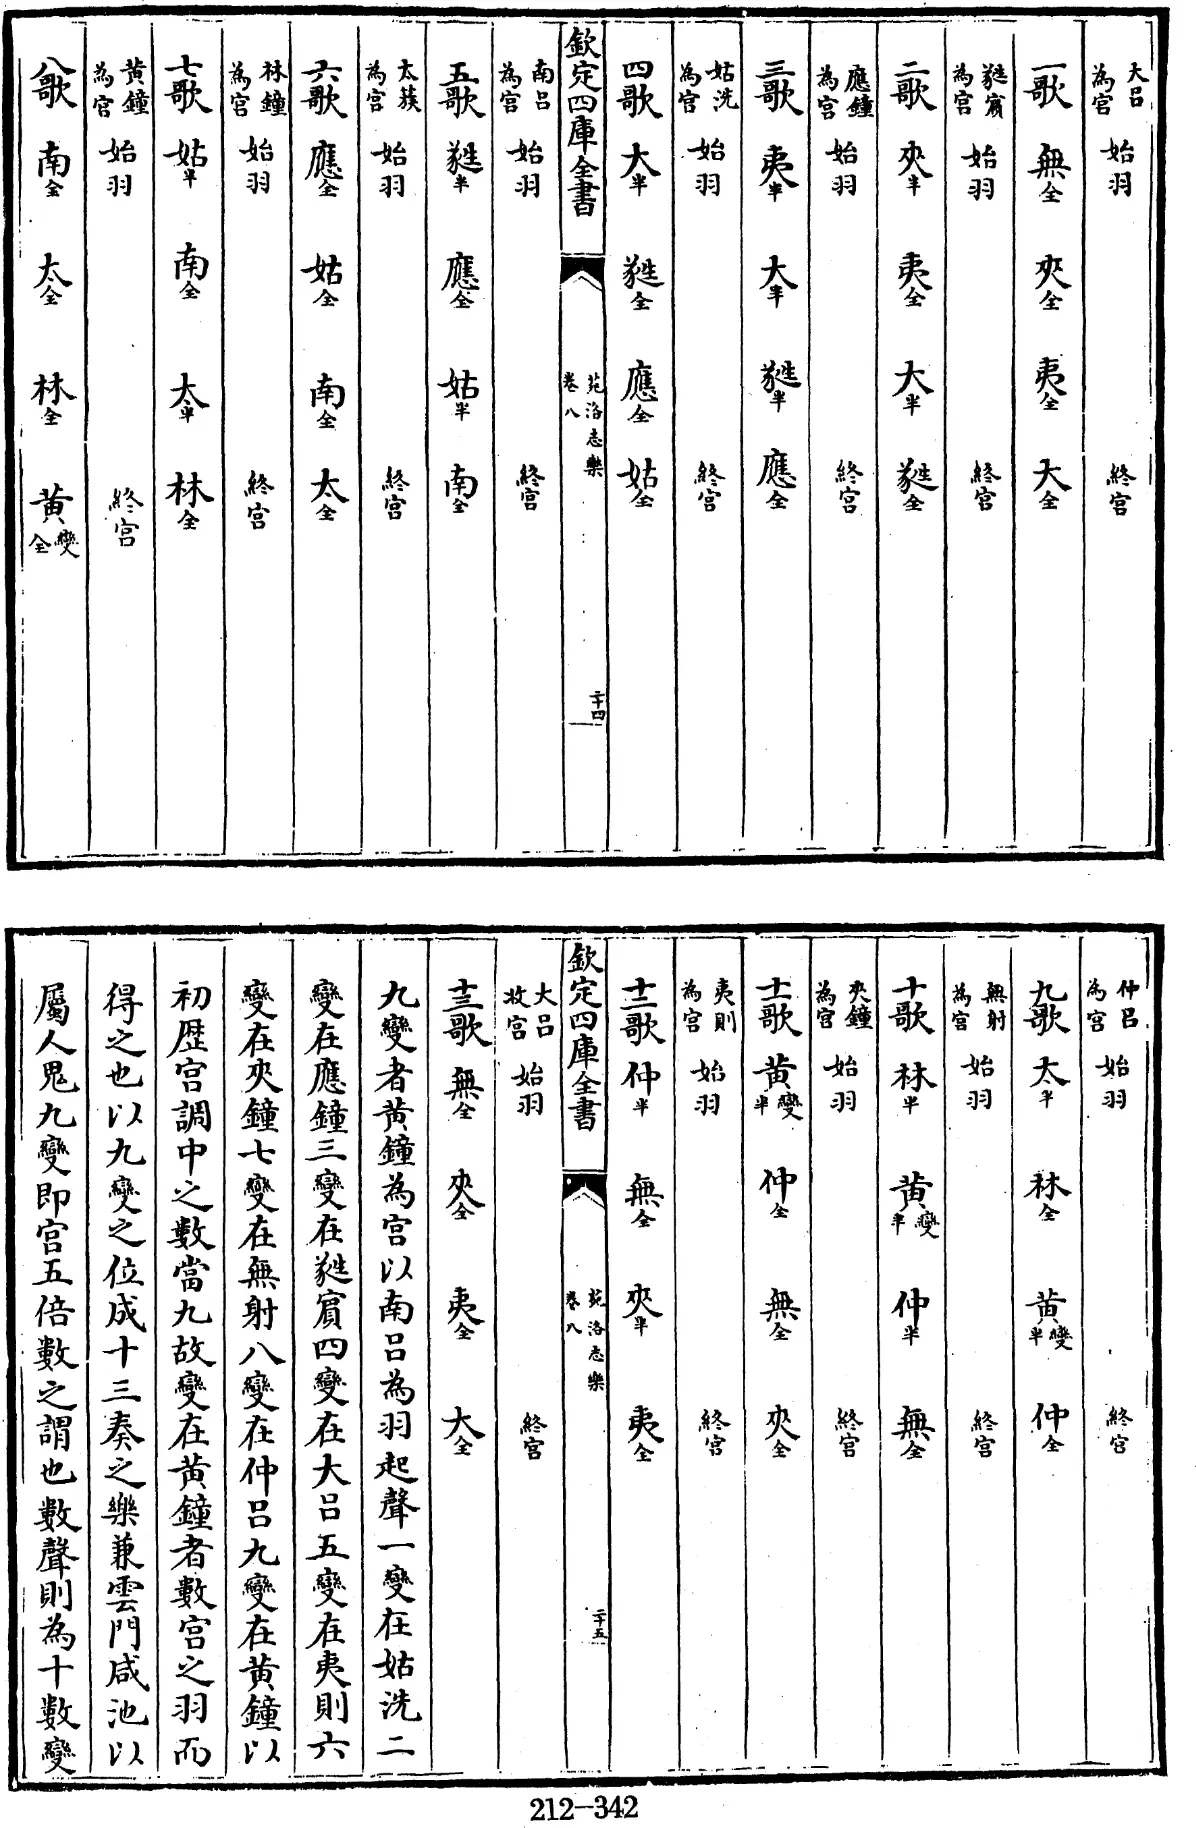 大呂為宮 始羽 終宮
一歌 無全 夾全 夷全 大全
蕤賔為宮 始羽 終宮
二歌 夾半 夷全 大半 蕤全
應鐘為宮 始羽 終宮
三歌 夷半 大半 蕤半 應全
姑洗為宮 始羽 終宮
四歌 大半 蕤全 應全 姑全
欽定四庫全書 苑洛志樂卷八 二十四
南呂為宮 始羽 終宮
五歌 蕤半 應全 姑半 南全
太蔟為宮 始羽 終宮
六歌 應全 姑全 南全 太全
林鐘為宮 始羽 終宮
七歌 姑半 南全 太半 林全
黃鐘為宮 始羽 終宮
八歌 南全 太全 林全 黃變全
仲呂為宮 始羽 終宮
九歌 太半 林全 黃變半 仲全
無射為宮 始羽 終宮
十歌 林半 黃變半 仲半 無全
夾鐘為宮 始羽 終宮
十一歌 黃變半 仲全 無全 夾全
夷則為宮 始羽 終宮
十二歌 仲半 無全 夾半 夷全
欽定四庫全書 苑洛志樂卷八 二十五
大呂收宮 始羽 終宮
十三歌 無全 夾全 夷全 大全
九變者黃鐘為宮以南呂為羽起聲一變在姑洗二
變在應鐘三變在蕤賔四變在大呂五變在夷則六
變在夾鐘七變在無射八變在仲呂九變在黃鐘以
初歷宮調中之數當九故變在黃鐘者數宮之羽而
得之也以九變之位成十三奏之樂兼雲門咸池以
屬人鬼九變即宮五倍數之謂也數聲則為十數變
212-342